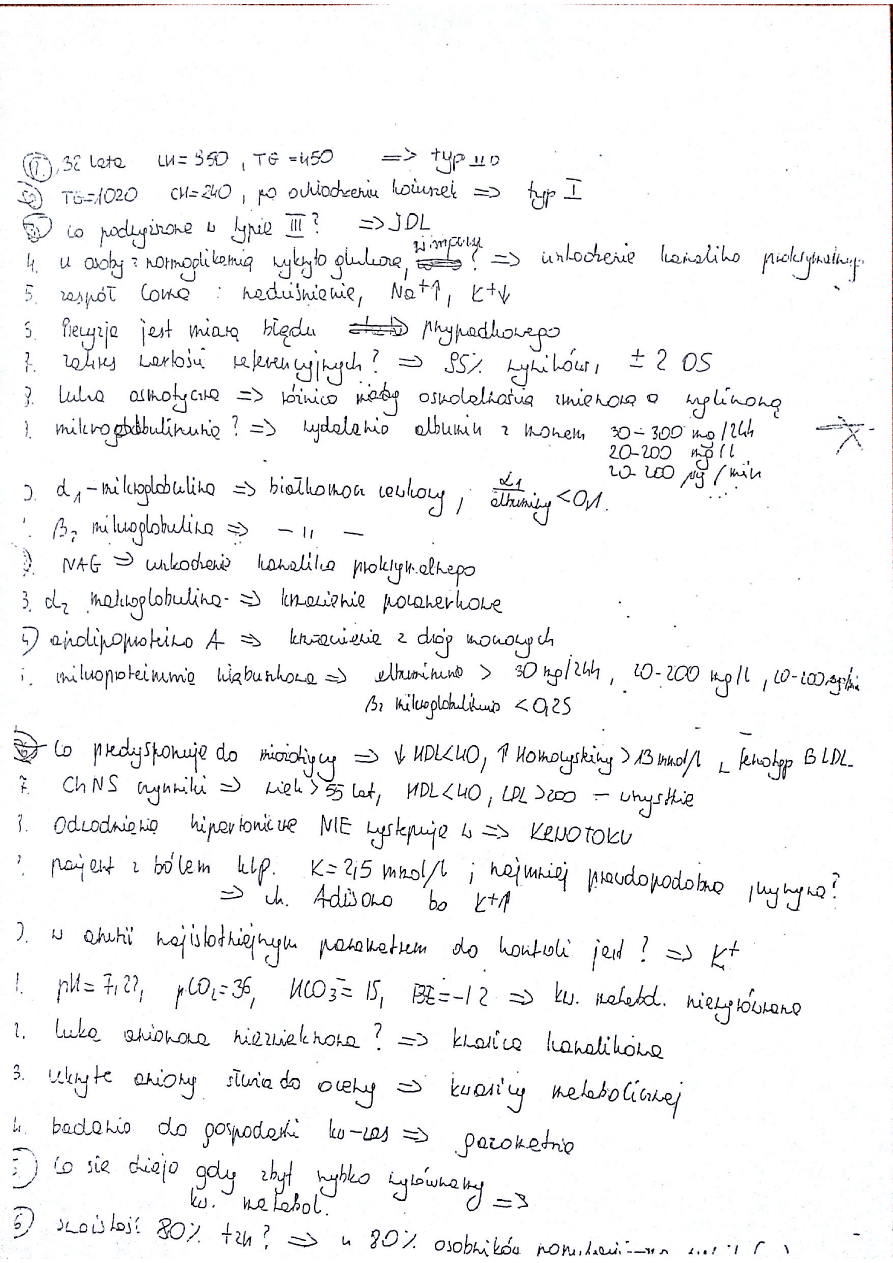 1. 32 lata CH=350, TG=450 => typ IIb
2. TG=1020 CH=240, po odwodzeniu kożuszek => typ I
3. co podwyższone w typie III? => IDL
4. u osoby z normoglikemią wykryto glukozę, w moczu? => uszkodzenie kanalika proksymalnego
5. zespół Conna : nadciśnienie, Na+↑, K+↓
Precyzja jest miarą błędu => przypadkowego
7. zakres wartości referencyjnych? => 95% wyników, ± 2 OS
luka osmotyczna => różnica między osmolalnością zmierzoną a wyliczoną
mikroglobulinuria? => wydalanie albumin z moczem 30-300 mg/24h
20-200 mg/l
20-200 µg/min
α1-mikroglobulina => białkomocz cewkowy, α1/albuminy <0,1.
β2 mikroglobulina => - 11 -
NAG => uszkodzenie kanalika proksymalnego
3. α2 makroglobulina => krwawienie pozanerkowe
4) apolipoproteina A => krwawienie z dróg moczowych
mikroproteinuria kłębuszkowa => albuminuria > 30 mg/24h, 20-200 mg/l, 20-200 µg/min
β2 mikroglobulina <0,25
6 Co predysponuje do miażdżycy => ↓ HDL<40, ↑ Homocysteiny >13 mmol/l fenotyp B LDL
7. ChNS czynniki => wiek >55 lat, HDL<40, LDL >200 - wszystkie
Odwodnienie hipertoniczne NIE występuje w => KRWOTOKU
pacjent z bólem klp. K=2,5 mmol/l ; najmniej prawdopodobna przyczyna?
=> ch. Adisona bo K+↑
w anurii najistotniejszym parametrem do kontroli jest? => K+
1. pH=7,22, pCO2=36, HCO3-=15, BE=-12 => kw. metabol. niewyrównana
2. luka anionowa niezwiększona? => kwasica kanalikowa
3. ukryte aniony służą do oceny => kwasicy metabolicznej
4. badania do gospodarki kw-zas => gazometria
5) co się dzieje gdy zbyt szybko wyrównamy =>
kw. metabol.
6) swoistość 80% tzn? => u 80% osobników